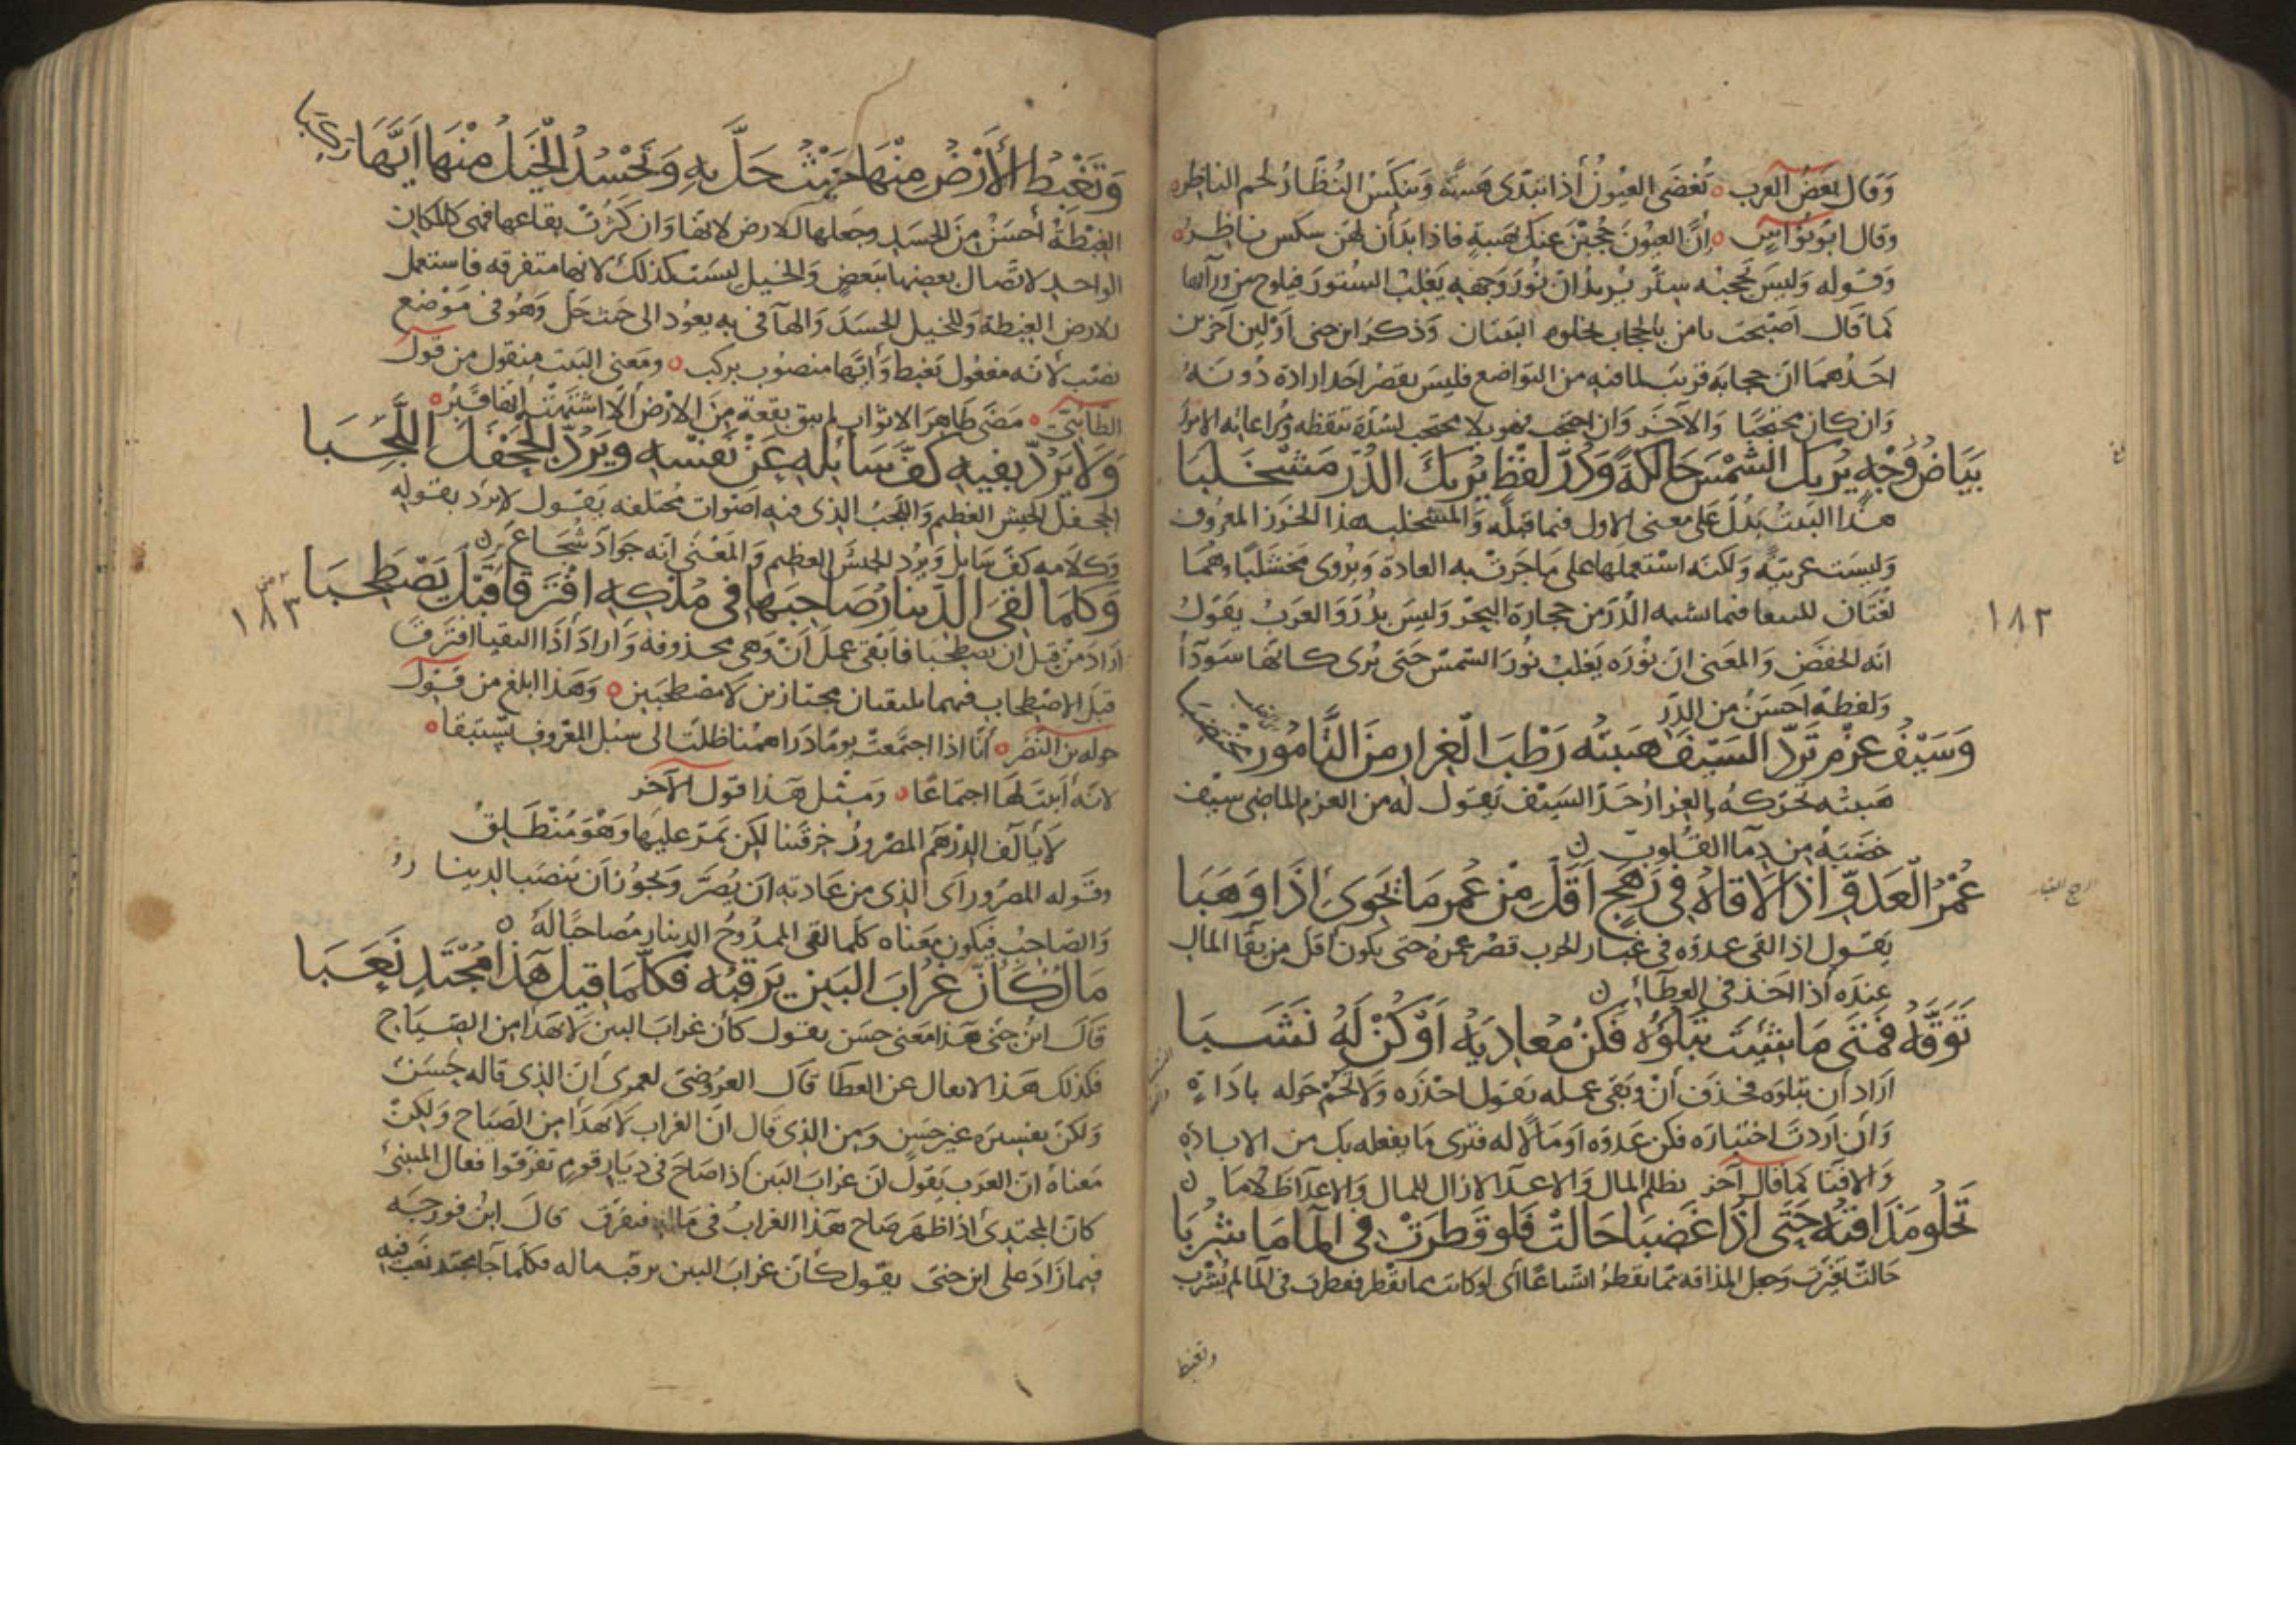 وقال بعض العرب تغضى العيون اذا تبدى هيبة وينكس النظار لحم الناظر
وقال ابو نواس ان العيون حجبن عنك بهيبة فاذا بدأن لهن نكس ناظر
وقوله وليس يحجبه ستر يريد ان نور وجهه يغلب الستور فيلوح من ورآئها
كما قال اصبحت تامر بالحجاب لخلوة البيتان وذكر ابن جنى اولين آخرين
احدهما ان حجابه قريب لما فيه من التواضع فليس يقصر احد اراده دونه
وان كان محتجبا والآخر وان احتجب فهو لا محتجب لشدة تيقظه ومراعاته الامور
بَيَاضُ وَجْهٍ يُرِيكَ الشَّمْسَ حَالِكَةً وَدُرُّ لَفْظٍ يُرِيكَ الدُّرَّ مَشْخَلَبَا
هذا البيت يدل على معنى الاول فيما قبله والمشخلبه هذا الخرز المعروف
وليست عربية ولكنه استعملها على ما جرت به العادة ويروى مخشلبا وهما
لغتان للنبط فيما يشبه الدر من حجارة البحر وليس بدر والعرب يقول
انه الخضض والمعنى ان نوره يغلب نور الشمس حتى يرى كانها سودآ
ولفظه احسن من الدر
وَسَيْفُ عَزْمٍ تَرُدُّ السَّيْفَ هَبَّتُهُ رَطْبَ الْغِرَارِ مِنَ التَّامُورِ مُخْتَضِبَا
هبته تحركه والغرار حد السيف يقول له من العزم الماضى سيف
خضبه من دمآ القلوب
عُمْرُ الْعَدُوِّ اِذَا لَاقَاهُ فِى رَهَجٍ أَقَلُّ مِنْ عُمْرِ مَا يَحْوِى اِذَا وَهَبَا
يقول اذا لقى عدوه فى غبار الحرب قصر عمره حتى يكون اقل من بقآ المال
عنده اذا اخذ فى العطآء
تَوَقَّهُ فَمَتَى مَا شِئْتَ تَبْلُوَهُ فَكُنْ مُعَادِيَهُ أَوْ كُنْ لَهُ نَشَبَا
اراد ان تبلوه فحذف ان وبقى عمله يقول احذره ولا تحم حوله باذاءة
وان اردت اختباره فكن عدوه او مالا له فترى ما يفعله بك من الابادة
والافنا كما قال آخر تظلم المال والاعدآ لا زال للمال والاعدآ ظلاما
تَحْلُو مَذَاقَتُهُ حَتَّى اِذَا غَضِبَا حَالَتْ فَلَوْ قَطَرَتْ فِى الْمَا مَا شُرِبَا
حالت تغيرت وجعل المذاقة مما يقطر اتساعا اى لو كانت مما يقطر فقطرت فى المآ لم يشرب
وتغبط
١٨٢
الرهج الغبار
وَتَغْبِطُ الْأَرْضُ مِنْهَا حَيْثُ حَلَّ بِهِ وَتَحْسُدُ الْخَيْلُ مِنْهَا أَيَّهَا رَكِبَا
الغبطة احسن من الحسد وجعلها للارض لانها وان كثرت بقاعها فهى كالمكان
الواحد لاتصال بعضها ببعض والخيل ليست كذلك لانها متفرقه فاستعمل
للارض الغبطة وللخيل الحسد والهآ فى به يعود الى حيث حل وهو فى موضع
نصب لانه مفعول تغبط وأيها منصوب بركب ومعنى البيت منقول من قول
الطآئى مضى طاهر الاثواب لم تبق بقعة من الارض الا اشتهت انها قبر
وَلَا يَرُدُّ بِفِيهِ كَفَّ سَائِلِهِ عَنْ نَفْسِهِ وَيَرُدُّ الْجَحْفَلَ اللَّجِبَا
الجحفل الجيش العظيم واللجب الذى فيه اصوات مختلفه يقول لا يرد بقوله
وكلامه كف سايل ويرد الجيش العظيم والمعنى انه جواد شجاع
وَكُلَّمَا لَقِىَ الدِّينَارُ صَاحِبَهُ فِى مُلْكِهِ افْتَرَقَا قَبْلَ يَصْطَحِبَا
اراد من قبل ان يصطحبا فابقى عمل أن وهى محذوفة واراد اذا التقيا افترقا
قبل الاصطحاب فهما ملتقيان مجتازين لا مصطحبين وهذا ابلغ من قول
جوية بن النضر أنا اذا اجتمعت يوما دراهمنا ظلت الى سبل المعروف تستبقا
لانه أثبت لها اجتماعا ومثل هذا قول الآخر
لا يألف الدرهم المصرور خرقتنا لكن يمر عليها وهو منطلق
وقوله المصرور اى الذى من عادته ان يصر ويجوز ان ينصب الدينار
والصاحب فيكون معناه كلما لقى الممدوح الدينار مصاحبا له
مَالٌ كَأَنَّ غُرَابَ الْبَيْنِ يَرْقُبُهُ فَكُلَّمَا قِيلَ هَذَا مُجْتَدٍ نَعَبَا
قال ابن جنى هذا معنى حسن يقول كان غراب البين لا يهدأ من الصياح
فكذلك هذا لا يعال عن العطا قال العروضى لعمرى ان الذى قاله حسن
ولكن تفسيره غير حسن ومن الذى قال ان الغراب لا يهدأ من الصياح ولكن
معناه ان العرب يقول ان غراب البين اذا صاح فى ديار قوم تفرقوا فقال المتنبى
كان المجتدى اذا ظهر صاح هذا الغراب فى ماله فتفرق قال ابن فورجه
فيما زاد على ابن جنى يقول كأن غراب البين يرقب ماله فكلما جآ مجتد نعب فيه
١٨٣